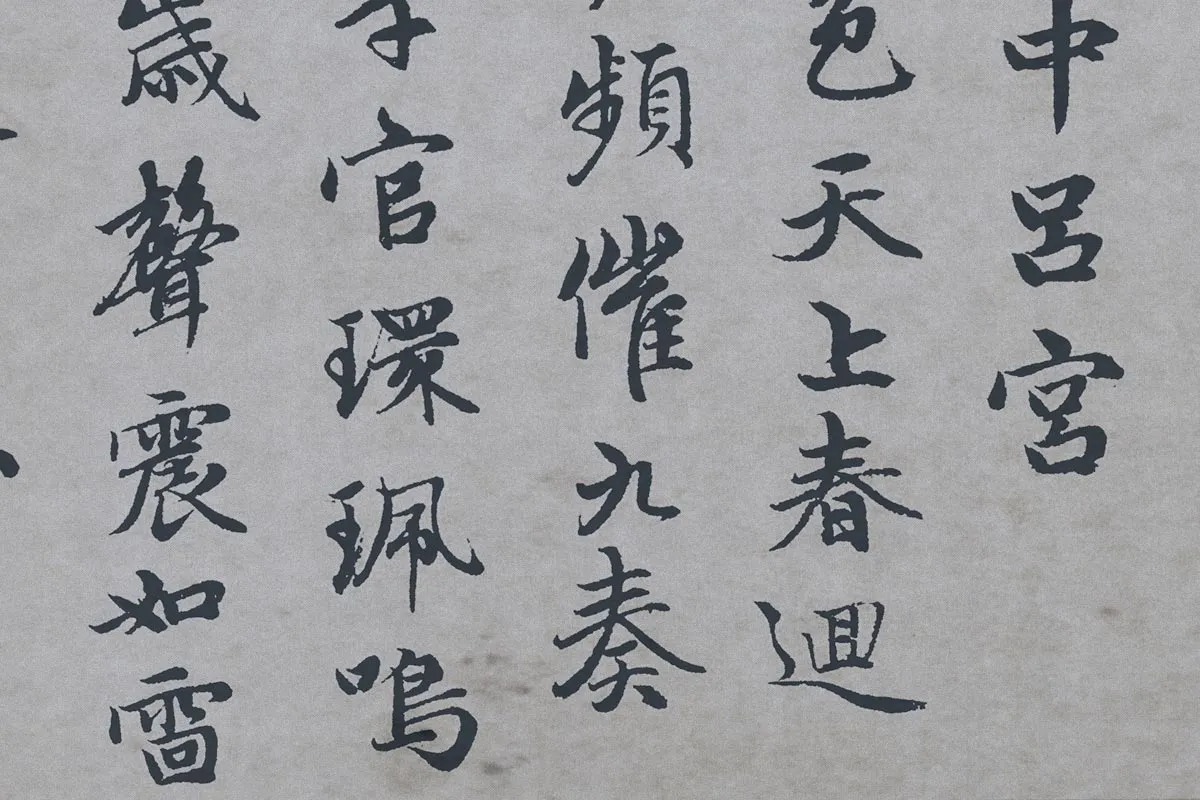 中呂宮
色天上春迴
頻催九奏
官環珮鳴
歲聲震如雷